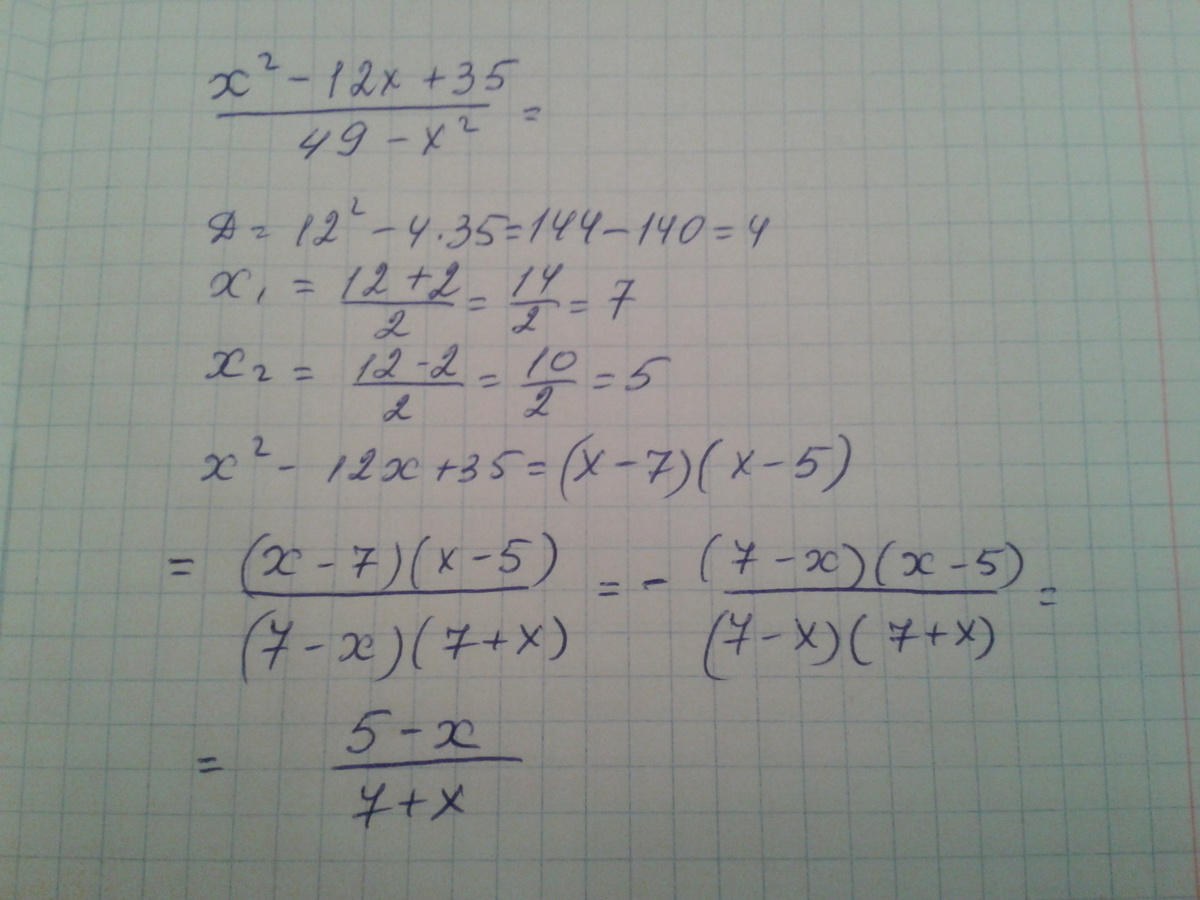 x² - 12x + 35
49 - x² =
D = 12² - 4·35 = 144 - 140 = 4
x₁ = (12 + 2)/2 = 14/2 = 7
x₂ = (12 - 2)/2 = 10/2 = 5
x² - 12x + 35 = (x - 7)(x - 5)
= (x - 7)(x - 5)/(7 - x)(7 + x) = - (7 - x)(x - 5)/(7 - x)(7 + x) =
= (5 - x)/(7 + x)